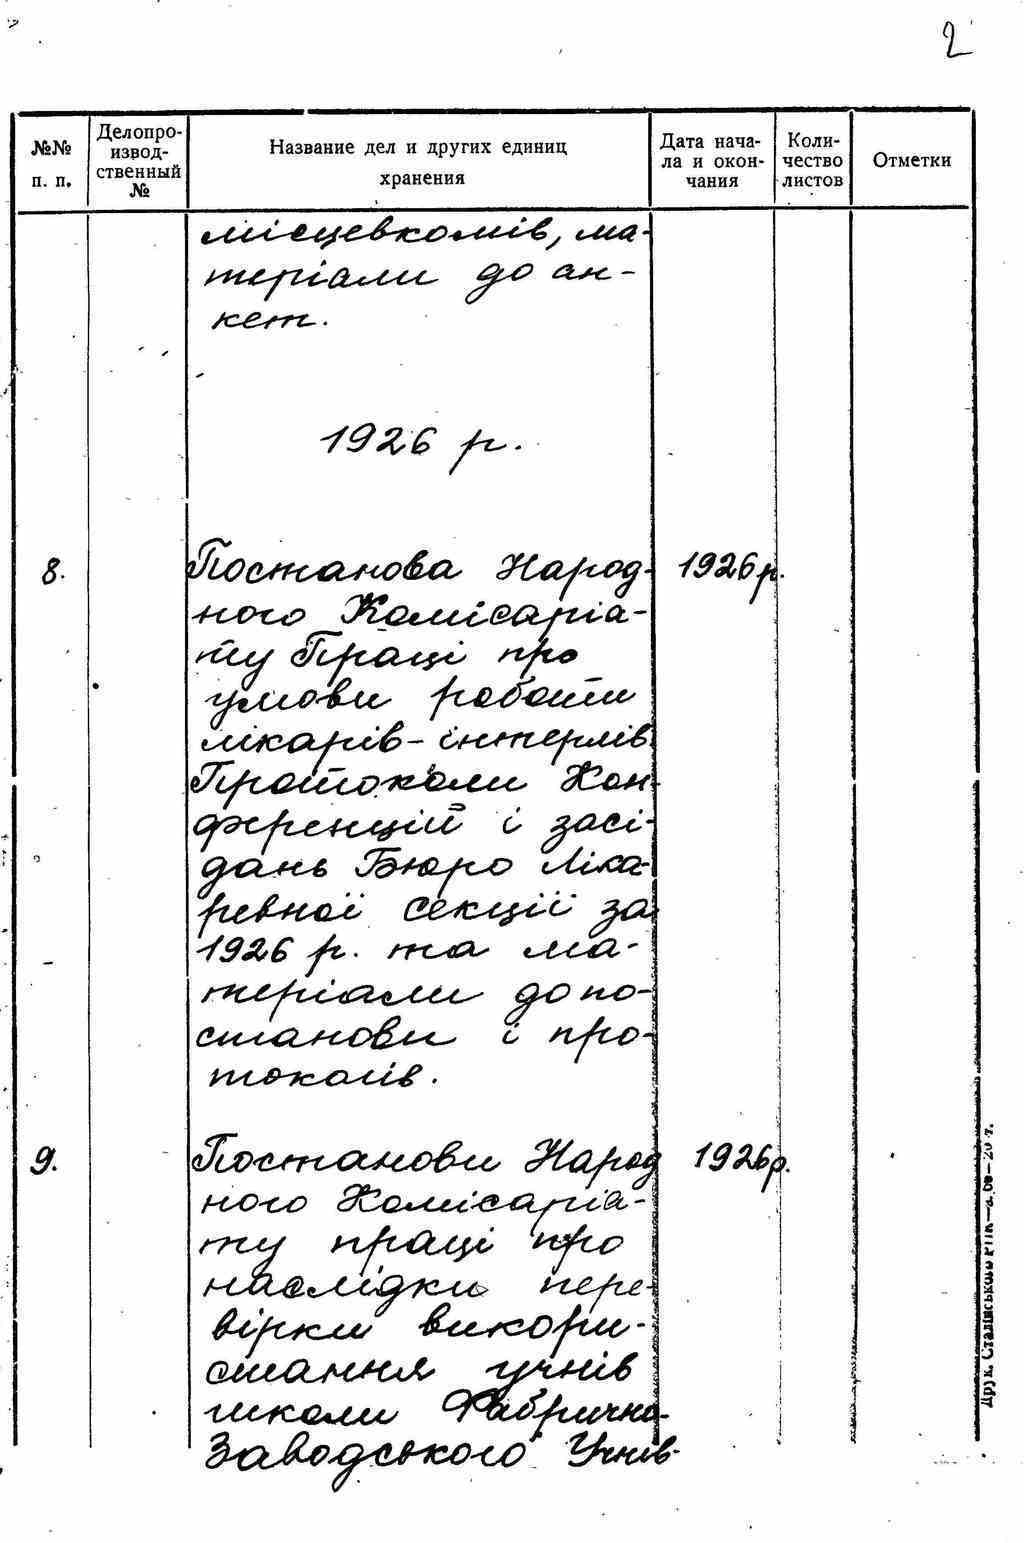 2
№№ п. п.
Делопро-
извод-
ственный
№
Название дел и других единиц
хранения
Дата нача-
ла и окон-
чания
Коли-
чество
листов
Отметки
місцевкомів, ма-
теріали до ан-
кет.
1926 р.
8. Постанова Народ- 1926 р.
ного Комісаріа-
ту Праці про
умови роботи
лікарів-інтернів
Протоколи Кон-
ференцій і засі-
дань Бюро Ліка-
ревної секції за
1926 р. та ма-
теріали до по-
станови і про-
токолів.
9. Постанови Народ 1926р.
ного Комісаріа-
ту праці про
наслідки пере-
вірки викори-
стання учнів
школи Фабрично-
Заводського Учнів-
Друк. Сталінського